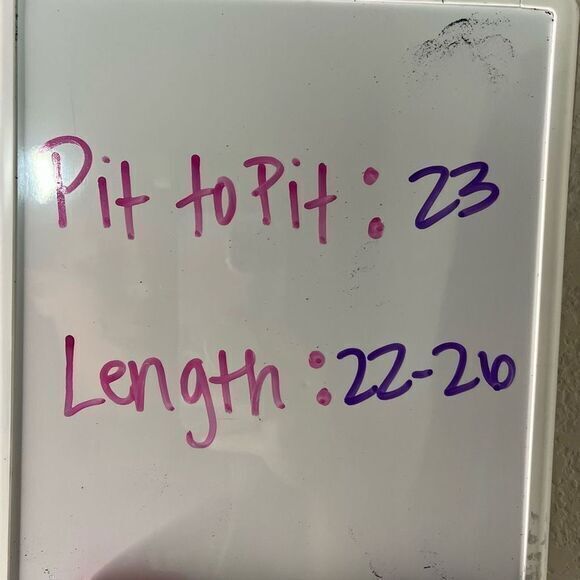 Pit to Pit: 23
Length: 22-26